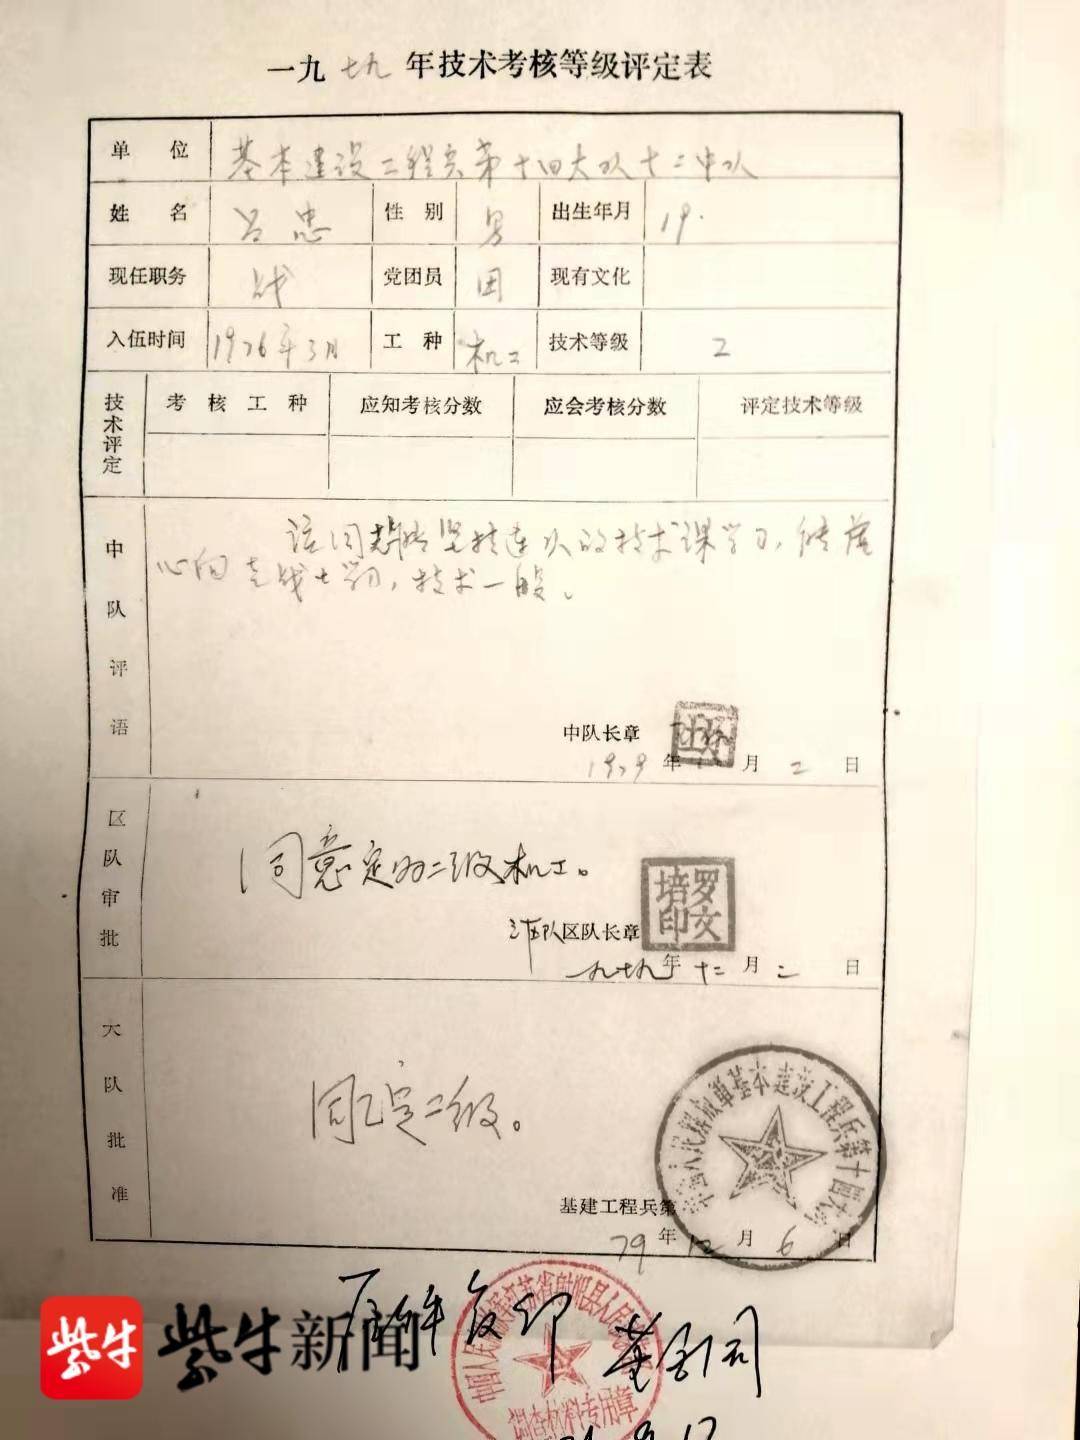 一九七九年技术考核等级评定表
单位 基本建设工程兵第十四大队十二中队
姓名 吕忠 性别 男 出生年月 19
现任职务 战 党团员 团 现有文化
入伍时间 1976年3月 工种 机工 技术等级 2
技术评定 考核工种 应知考核分数 应会考核分数 评定技术等级
中队评语
该同志能坚持连队的技术课学习,能虚
心向老战士学习,技术一般。
中队长章
1979年 月 2 日
区队审批
同意定为二级机工。
区队长章
罗文培印
一九七九年十二月二日
大队批准
同意定二级。
中国人民解放军基本建设工程兵第十四大队
基建工程兵第
79年12月6日
原件复印
中国人民解放军江苏省射阳县人民武装部
调查材料专用章
紫牛 紫牛新闻